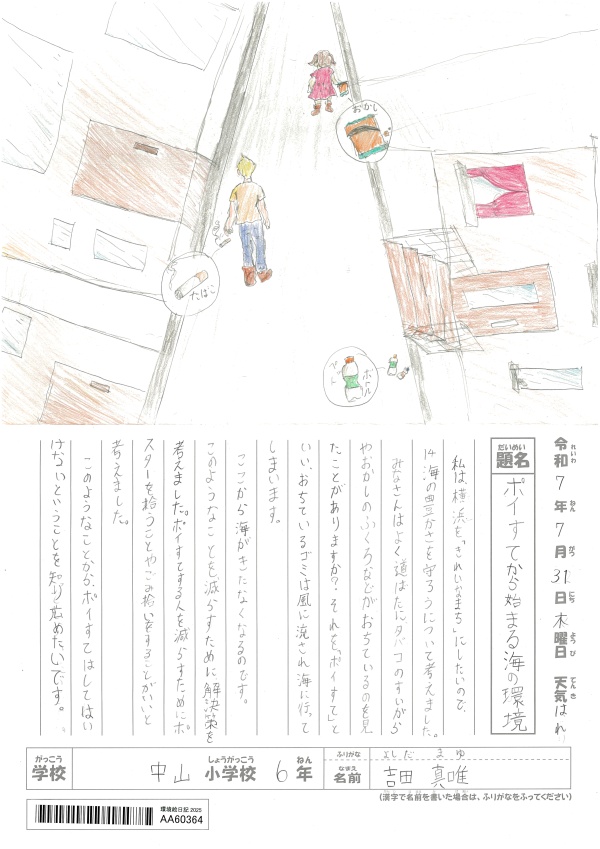 おかし
たばこ
ペット
ボトル
令和7年7月31日木曜日 天気はれ
れいわ ねん がつ にち ようび てんき
だいめい
題名
ポイすてから始まる海の環境
私は、横浜を「きれいなまち」にしたいので、
14海の豊かさを守ろうについて考えました。
みなさんはよく道ばたにタバコのすいがら
やおかしのふくろなどがおちているのを見
たことがありますか?それを、「ポイすて」と
いい、おちているゴミは風に流され海に行って
しまいます。
ここから海がきたなくなるのです。
このようなことを減らすために解決策を
考えました。ポイすてする人を減らすためにポ
スターを拾うことやごみ拾いをすることがいいと
考えました。
このようなことから、ポイすてはしてはい
けないということを知り広めたいです。
がっこう しょうがっこう ねん
学校 中山 小学校 6年
ふりがな よしだ まゆ
なまえ
名前 吉田 真唯
(漢字で名前を書いた場合は、ふりがなをふってください)
環境絵日記2025
AA60364